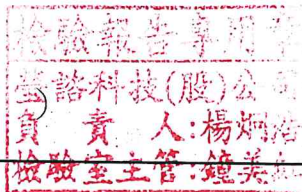 檢驗報告專用章
諮科技(股)公司
負責人:楊炯
檢驗室主管:鐘美